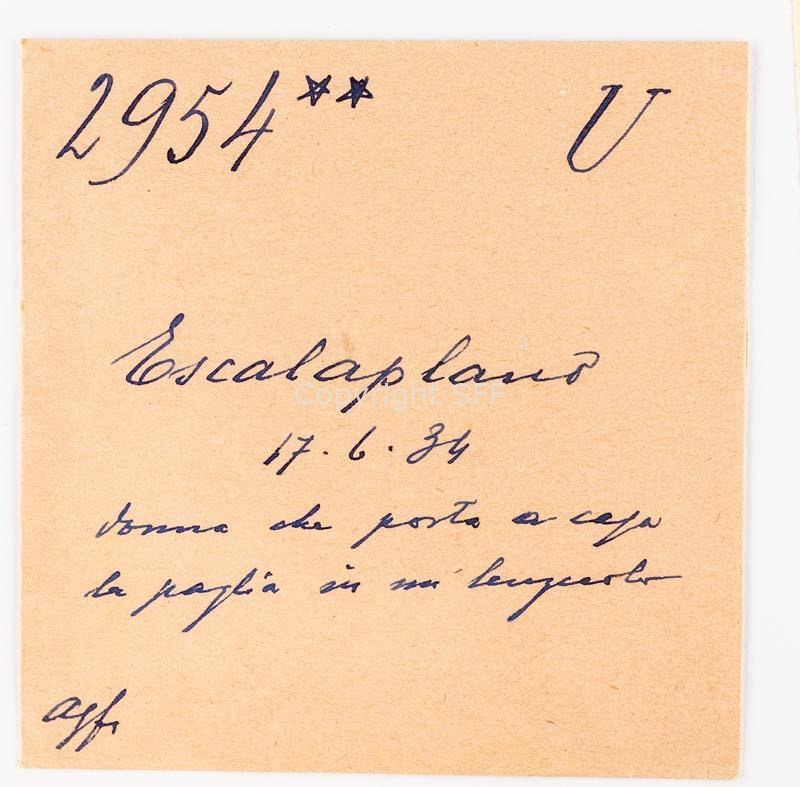 2954** U
Escalaplano
Copyright SFF
17.6.34
donna che porta a casa
la paglia in un lenzuolo
agfa